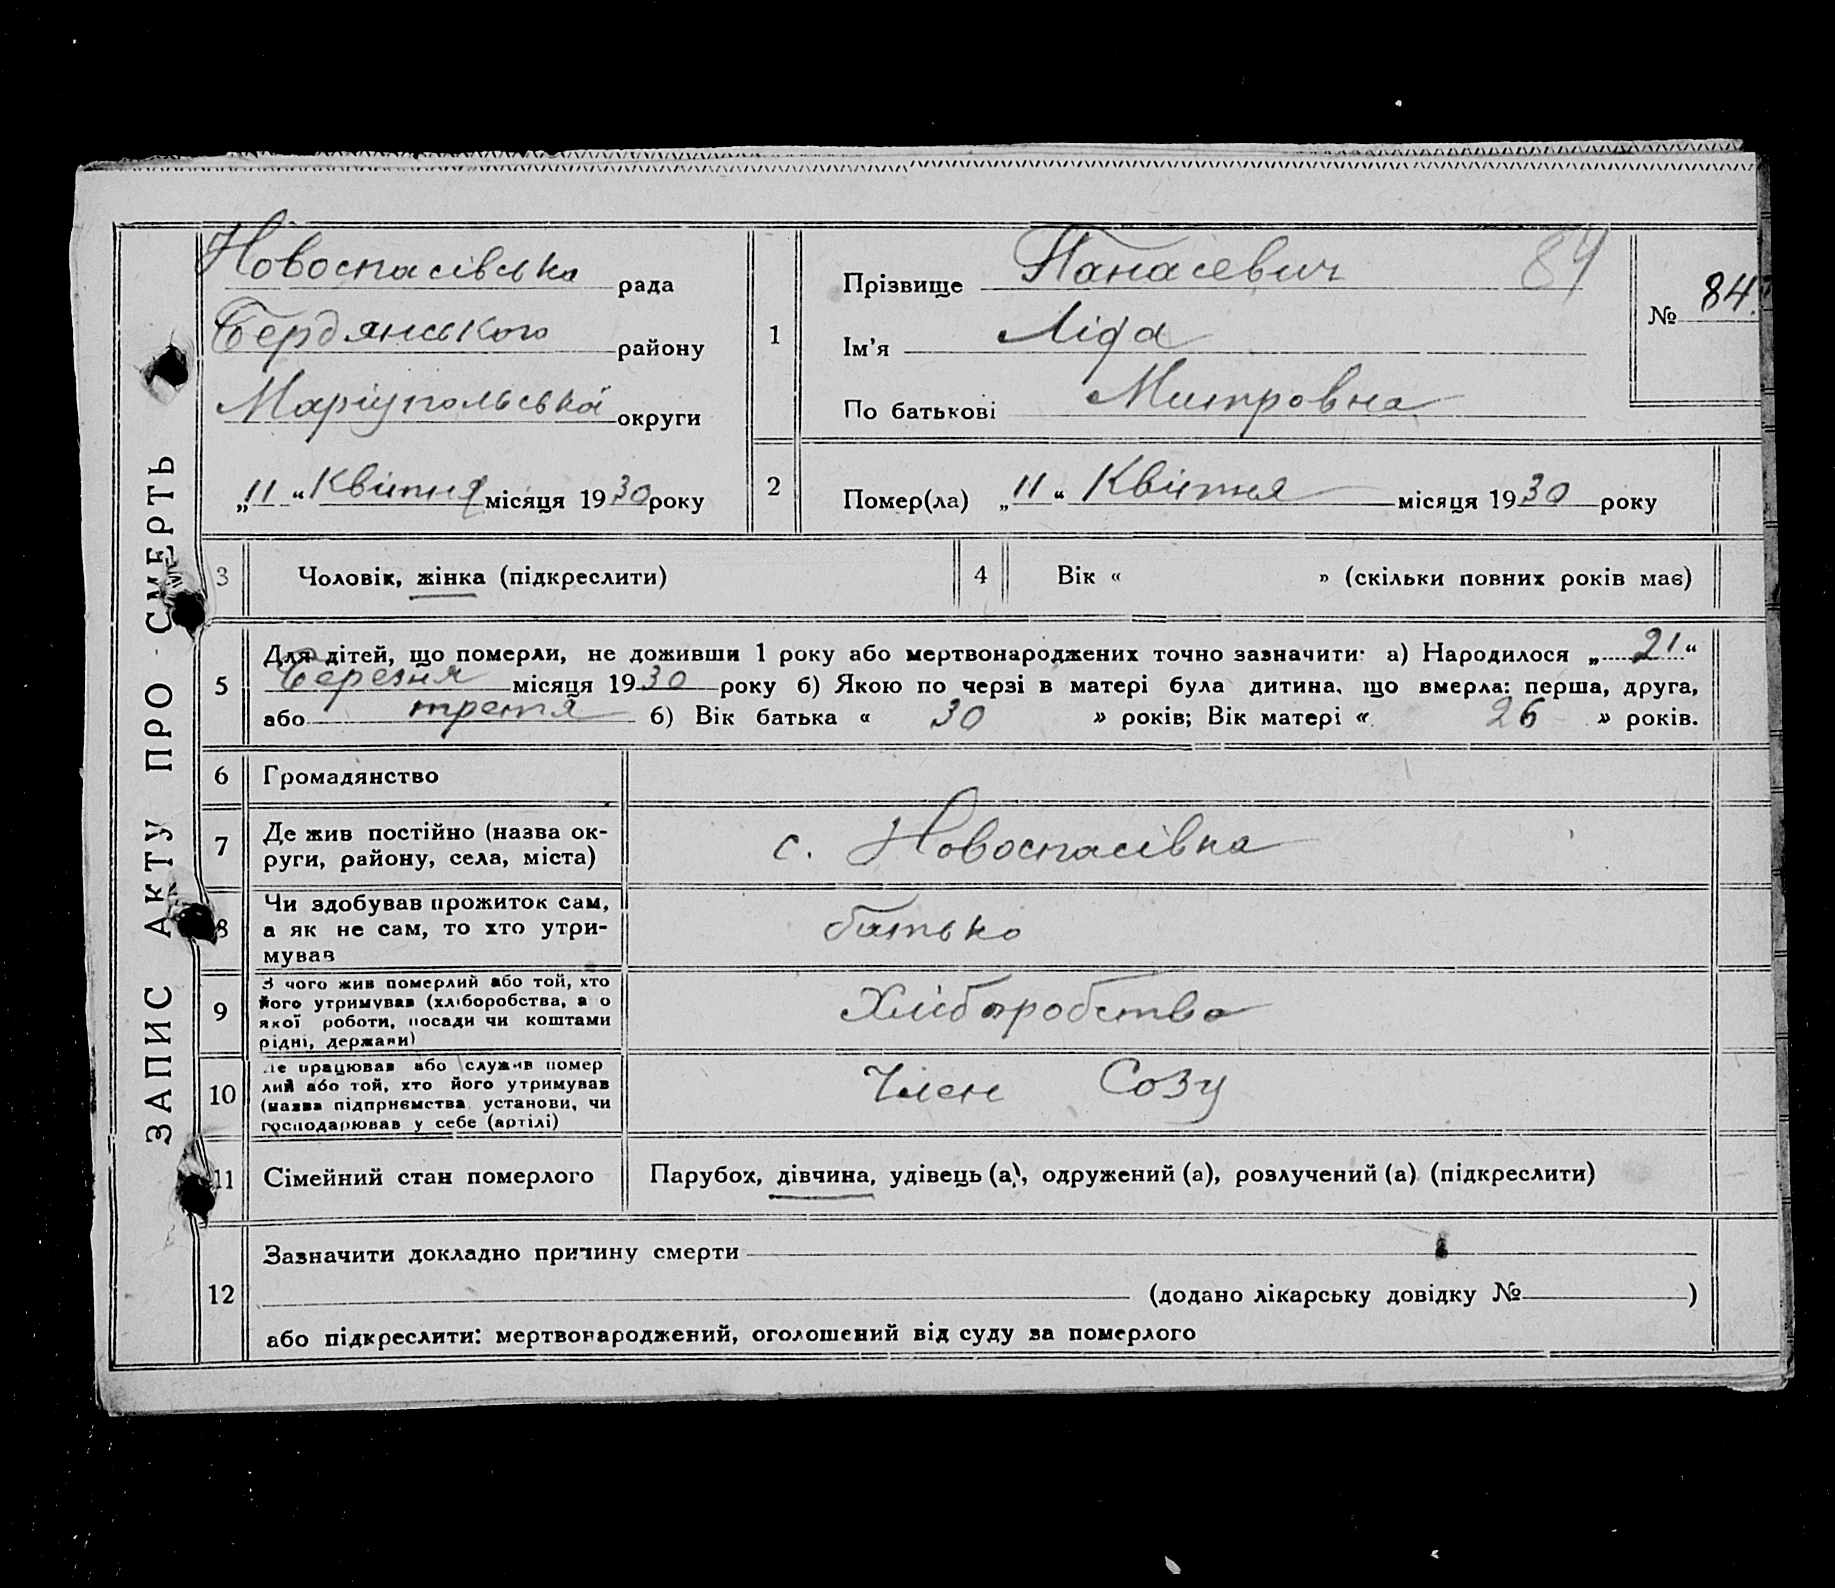 ЗАПИС АКТУ ПРО СМЕРТЬ
Новоспасівська рада
Бердянського району
Маріупольської округи
„11“ Квітня місяця 1930 року
1
Прізвище Панасевич 84
Ім’я Ліда
По батькові Митровна
№ 84.
2
Помер(ла) „11“ Квітня місяця 1930 року
3 Чоловік, жінка (підкреслити)
4 Вік « » (скільки повних років має)
5
Для дітей, що померли, не доживши 1 року або мертвонароджених точно зазначити: а) Народилося „21“
Березня місяця 1930 року б) Якою по черзі в матері була дитина, що вмерла: перша, друга,
або третя б) Вік батька « 30 » років; Вік матері « 26 » років.
6 Громадянство
7 Де жив постійно (назва ок-
руги, району, села, міста)
с. Новоспасівка
8 Чи здобував прожиток сам,
а як не сам, то хто утри-
мував
батько
9 З чого жив померлий або той, хто
його утримував (хліборобства, а о
якої роботи, посади чи коштами
рідні, держави)
Хліборобство
10 Де працював або служив помер
лий або той, хто його утримував
(назва підприємства, установи, чи
господарював у себе (артілі)
Член Созу
11 Сімейний стан померлого
Парубок, дівчина, удівець (а), одружений (а), розлучений (а) (підкреслити)
12
Зазначити докладно причину смерти
(додано лікарську довідку № )
або підкреслити: мертвонароджений, оголошений від суду за померлого